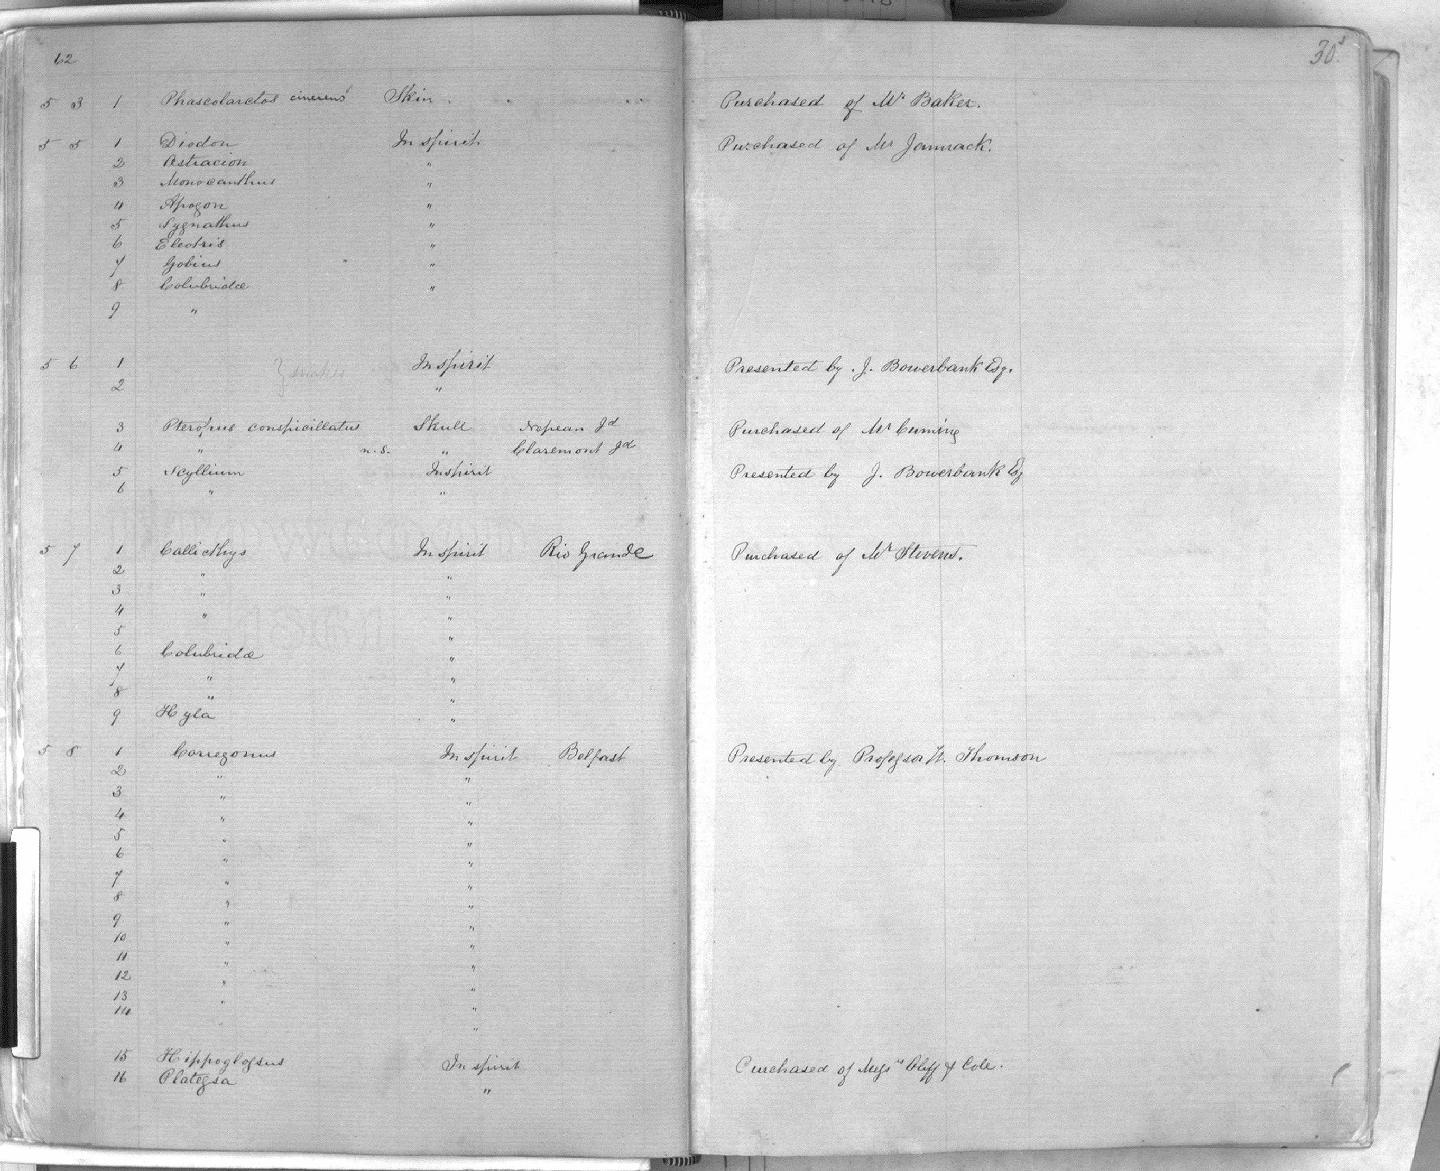 62
30
5 3 1 Phascolarctos cinereus Skin Purchased of Mr Baker.
5 5 1 Diodon In spirit Purchased of Mr Jamrack.
2 Ostracion "
3 Monocanthus "
4 Apogon "
5 Sygnathus "
6 Eleotris "
7 Gobius "
8 Colubridæ "
9 "
5 6 1 In spirit Presented by J. Bowerbank Esq.
2 "
3 Pteropus conspicillatus Skull Nepean Id Purchased of Mr Cuming
4 " n.s. " Claremont Id
5 Scyllium In spirit Presented by J. Bowerbank Esq
6 " "
5 7 1 Callicthys In spirit Rio Grande Purchased of Mr Stevens.
2 " "
3 " "
4 " "
5 "
6 Colubridæ "
7 " "
8 " "
9 Hyla "
5 8 1 Corregonus In spirit Belfast Presented by Professor W. Thomson
2 " "
3 " "
4 " "
5 " "
6 " "
7 " "
8 " "
9 " "
10 " "
11 " "
12 " "
13 " "
14 "
15 Hippoglossus In spirit Purchased of Messrs Cliff & Cole.
16 Platessa "